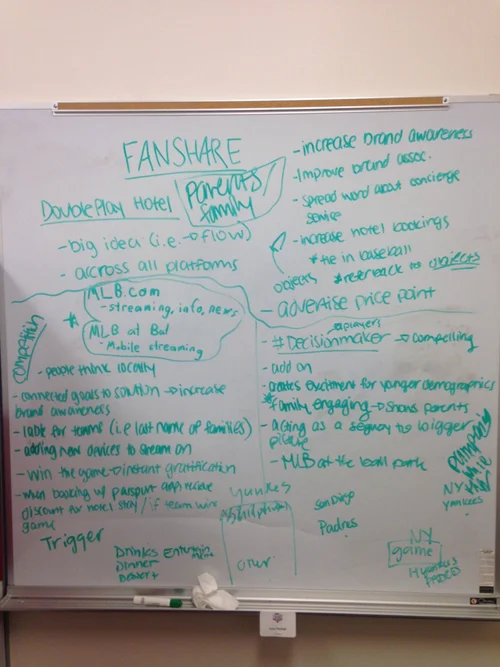 FANSHARE
DoublePlay Hotel
Parents/
family
- big idea (i.e. → flow)
- accross all platforms
- increase brand awareness
- Improve brand assoc.
- Spread word about concierge
service
- increase hotel bookings
* tie in baseball
objects * refer back to objects
- advertise price point
competition
* MLB.com
- streaming, info, news
MLB at Bat
- Mobile streaming
- people think locally
- connected goals to solution → increase
brand awareness
- table for teams (i.e last name of families)
- adding new devices to stream on
- win the game → instant gratification
- when booking w/ passport app receive
discount for hotel stay / if team wins
game
Trigger
Drinks
Dinner
Dessert
players
- #Decisionmaker → compelling
- add on
- creates excitment for younger demographics
* family engaging → shows parents
- acting as a segway to bigger
picture
- MLB at the ball park
Yankees
San Diego
Padres
NY
Yankees
NY
game